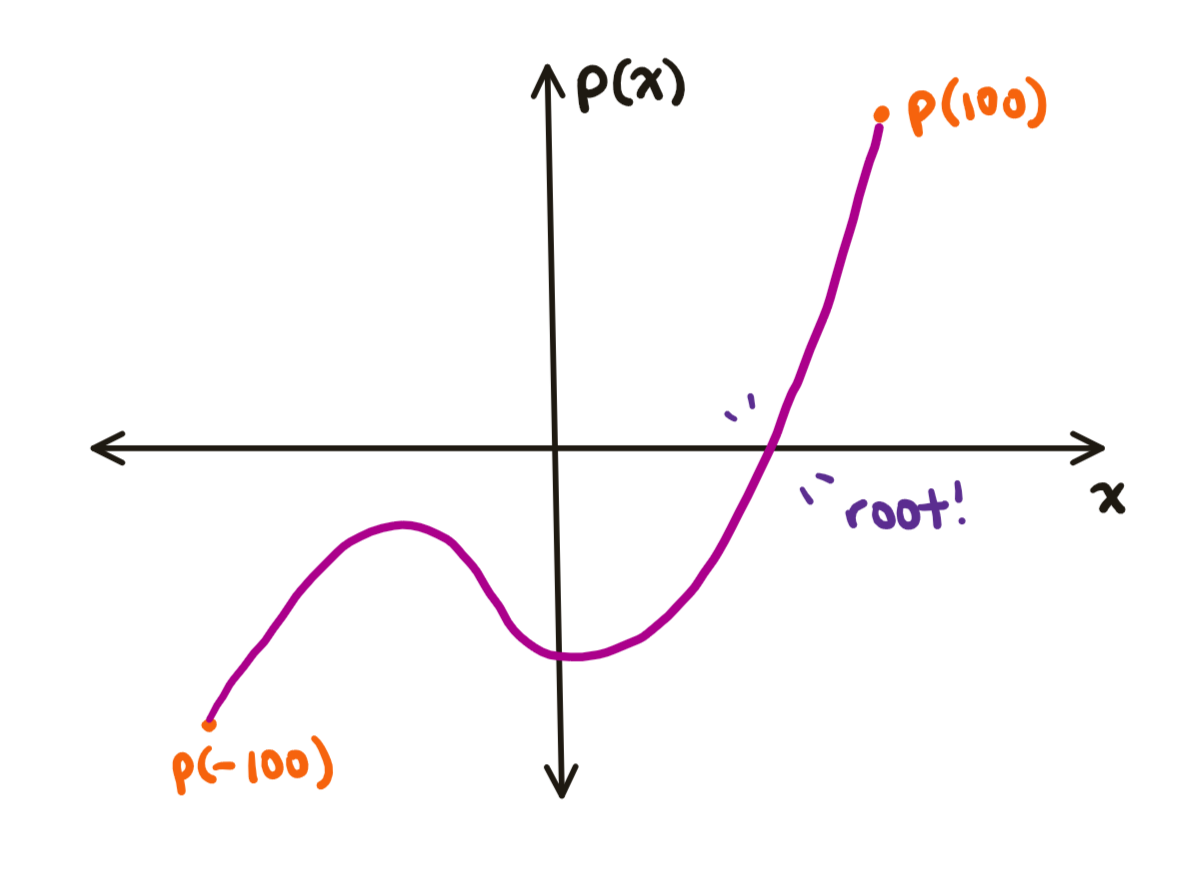 p(x)
p(100)
x
root!
p(-100)